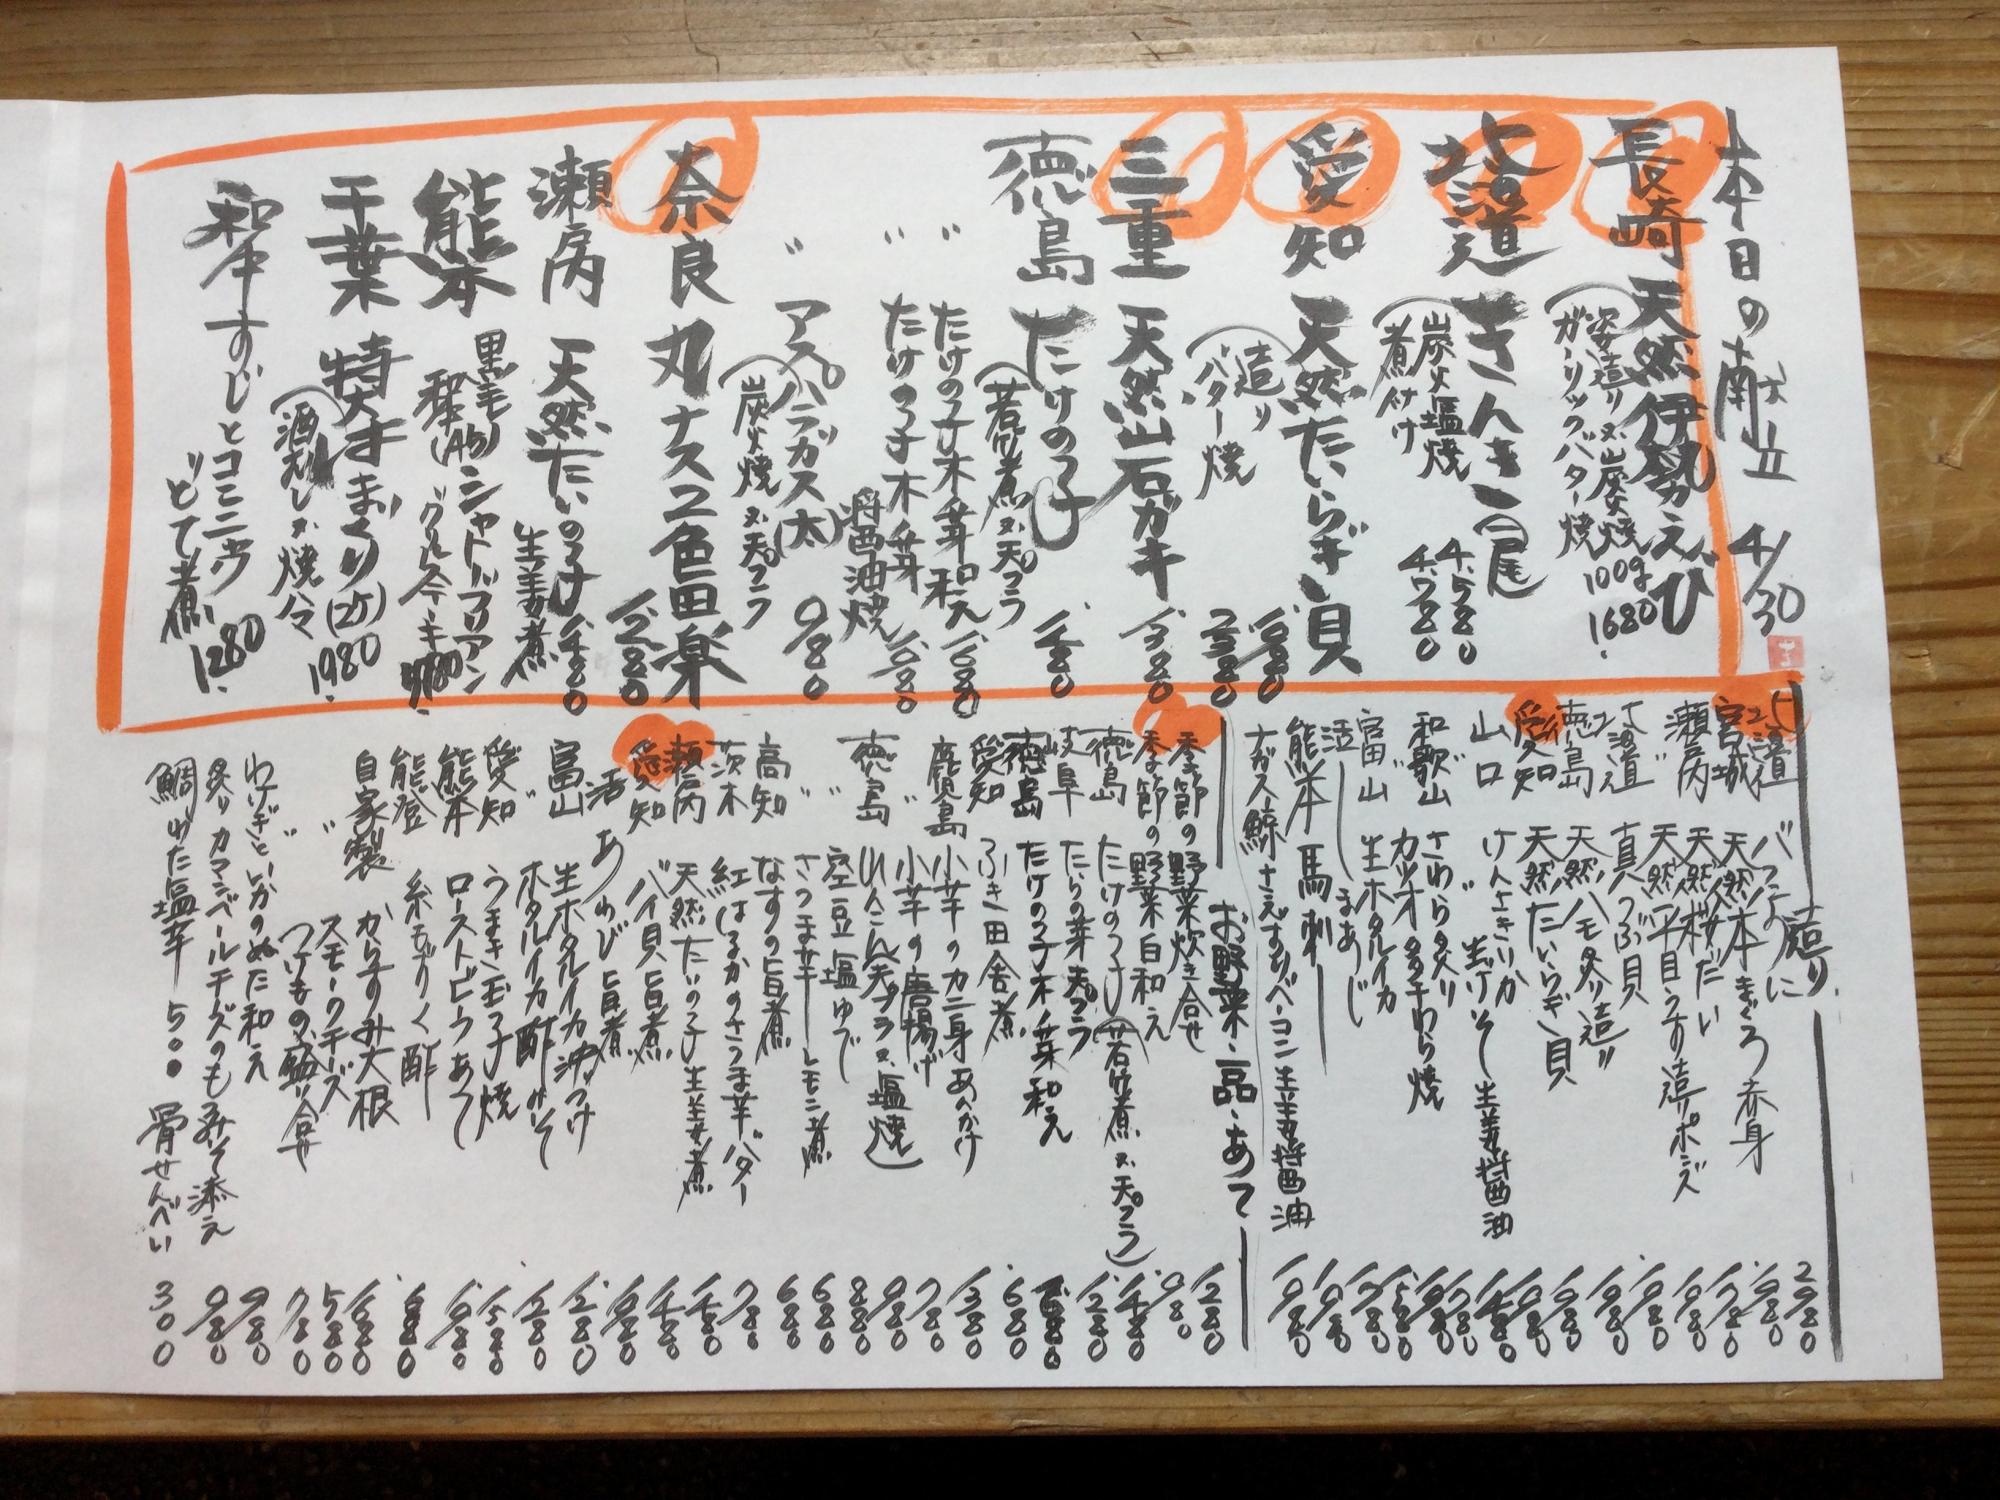 本日の献立 4/30
長崎 天然伊勢えび
姿造り又は炭火焼 100g
ガーリックバター焼 1680
北海道 きんき(一尾)
炭火塩焼 4.580
煮付け 4.780
愛知 天然たいらぎ貝
造り 1.680
バター焼 2380
三重 天然岩ガキ 1.380
徳島 たけの子 1.480
(若竹煮又は天プラ)
〃 たけの子木の芽和え 1.680
〃 たけの子木の芽将酉油焼 1.680
〃 アスパラガス(太) 980
(炭火焼又は天プラ)
奈良 丸ナス2色田楽 1.280
瀬戸内 天然たいの子 生姜煮 1.480
熊本 黒毛和牛(A5)シャトーブリアン
グリルステーキ 9.780
千葉 特大はまぐり(2ケ) 1.980
(酒むし又は焼)
和牛すじとコンニャク
どて煮 1.280
造り
北海道 バフンうに 2.980
宮城 天然本まぐろ赤身 1.980
瀬戸内 天然桜だい 1.780
〃 天然平目うす造りポン酢 1.980
北海道 真つぶ貝 1.980
徳島 天然ハモ炙り造り 1.980
愛知 天然たいらぎ貝 1.680
山口 けんさきいか 1.980
〃 〃 生げそ 生姜醤油 1.480
和歌山 さわら炙り
カツオタタキわら焼
富山 生ホタルイカ
活 まあじ 1.780
熊本 馬刺し 1.980
ナガス鯨さえずりベーコン生姜醤油 1.980
お野菜・一品・あて
季節の野菜炊き合せ 1.280
季節の野菜白和え 980
徳島 たけの子(若竹煮又は天プラ) 1.480
岐阜 たらの芽天プラ 1.280
徳島 たけの子木の芽和え 1.680
愛知 ふき田舎煮 680
鹿児島 小芋のカニ身あんかけ 1.380
〃 小芋の唐揚げ 780
徳島 れんこん(天プラ又は塩焼) 980
〃 空豆塩ゆで 880
〃 さつま芋レモン煮 680
高知 なすの旨煮 680
茨木 紅はるかのさつま芋バター 780
瀬戸内 天然たいの子生姜煮 1.480
愛知 バイ貝旨煮 1.480
活 あわび旨煮 1.980
富山 生ホタルイカ沖つけ 1.280
〃 ホタルイカ酢みそ 1.280
愛知 うまき玉子焼 1.580
熊本 ローストビーフあて 1.980
能登 糸もずく酢 680
自家製 からすみ大根 1.680
〃 スモークチーズ 580
〃 つけもの盛り合せ 780
わけぎといかのぬた和え 980
炙りカマンベールチーズのもろみそ添え 980
鯛わた塩辛 500 骨せんべい 300